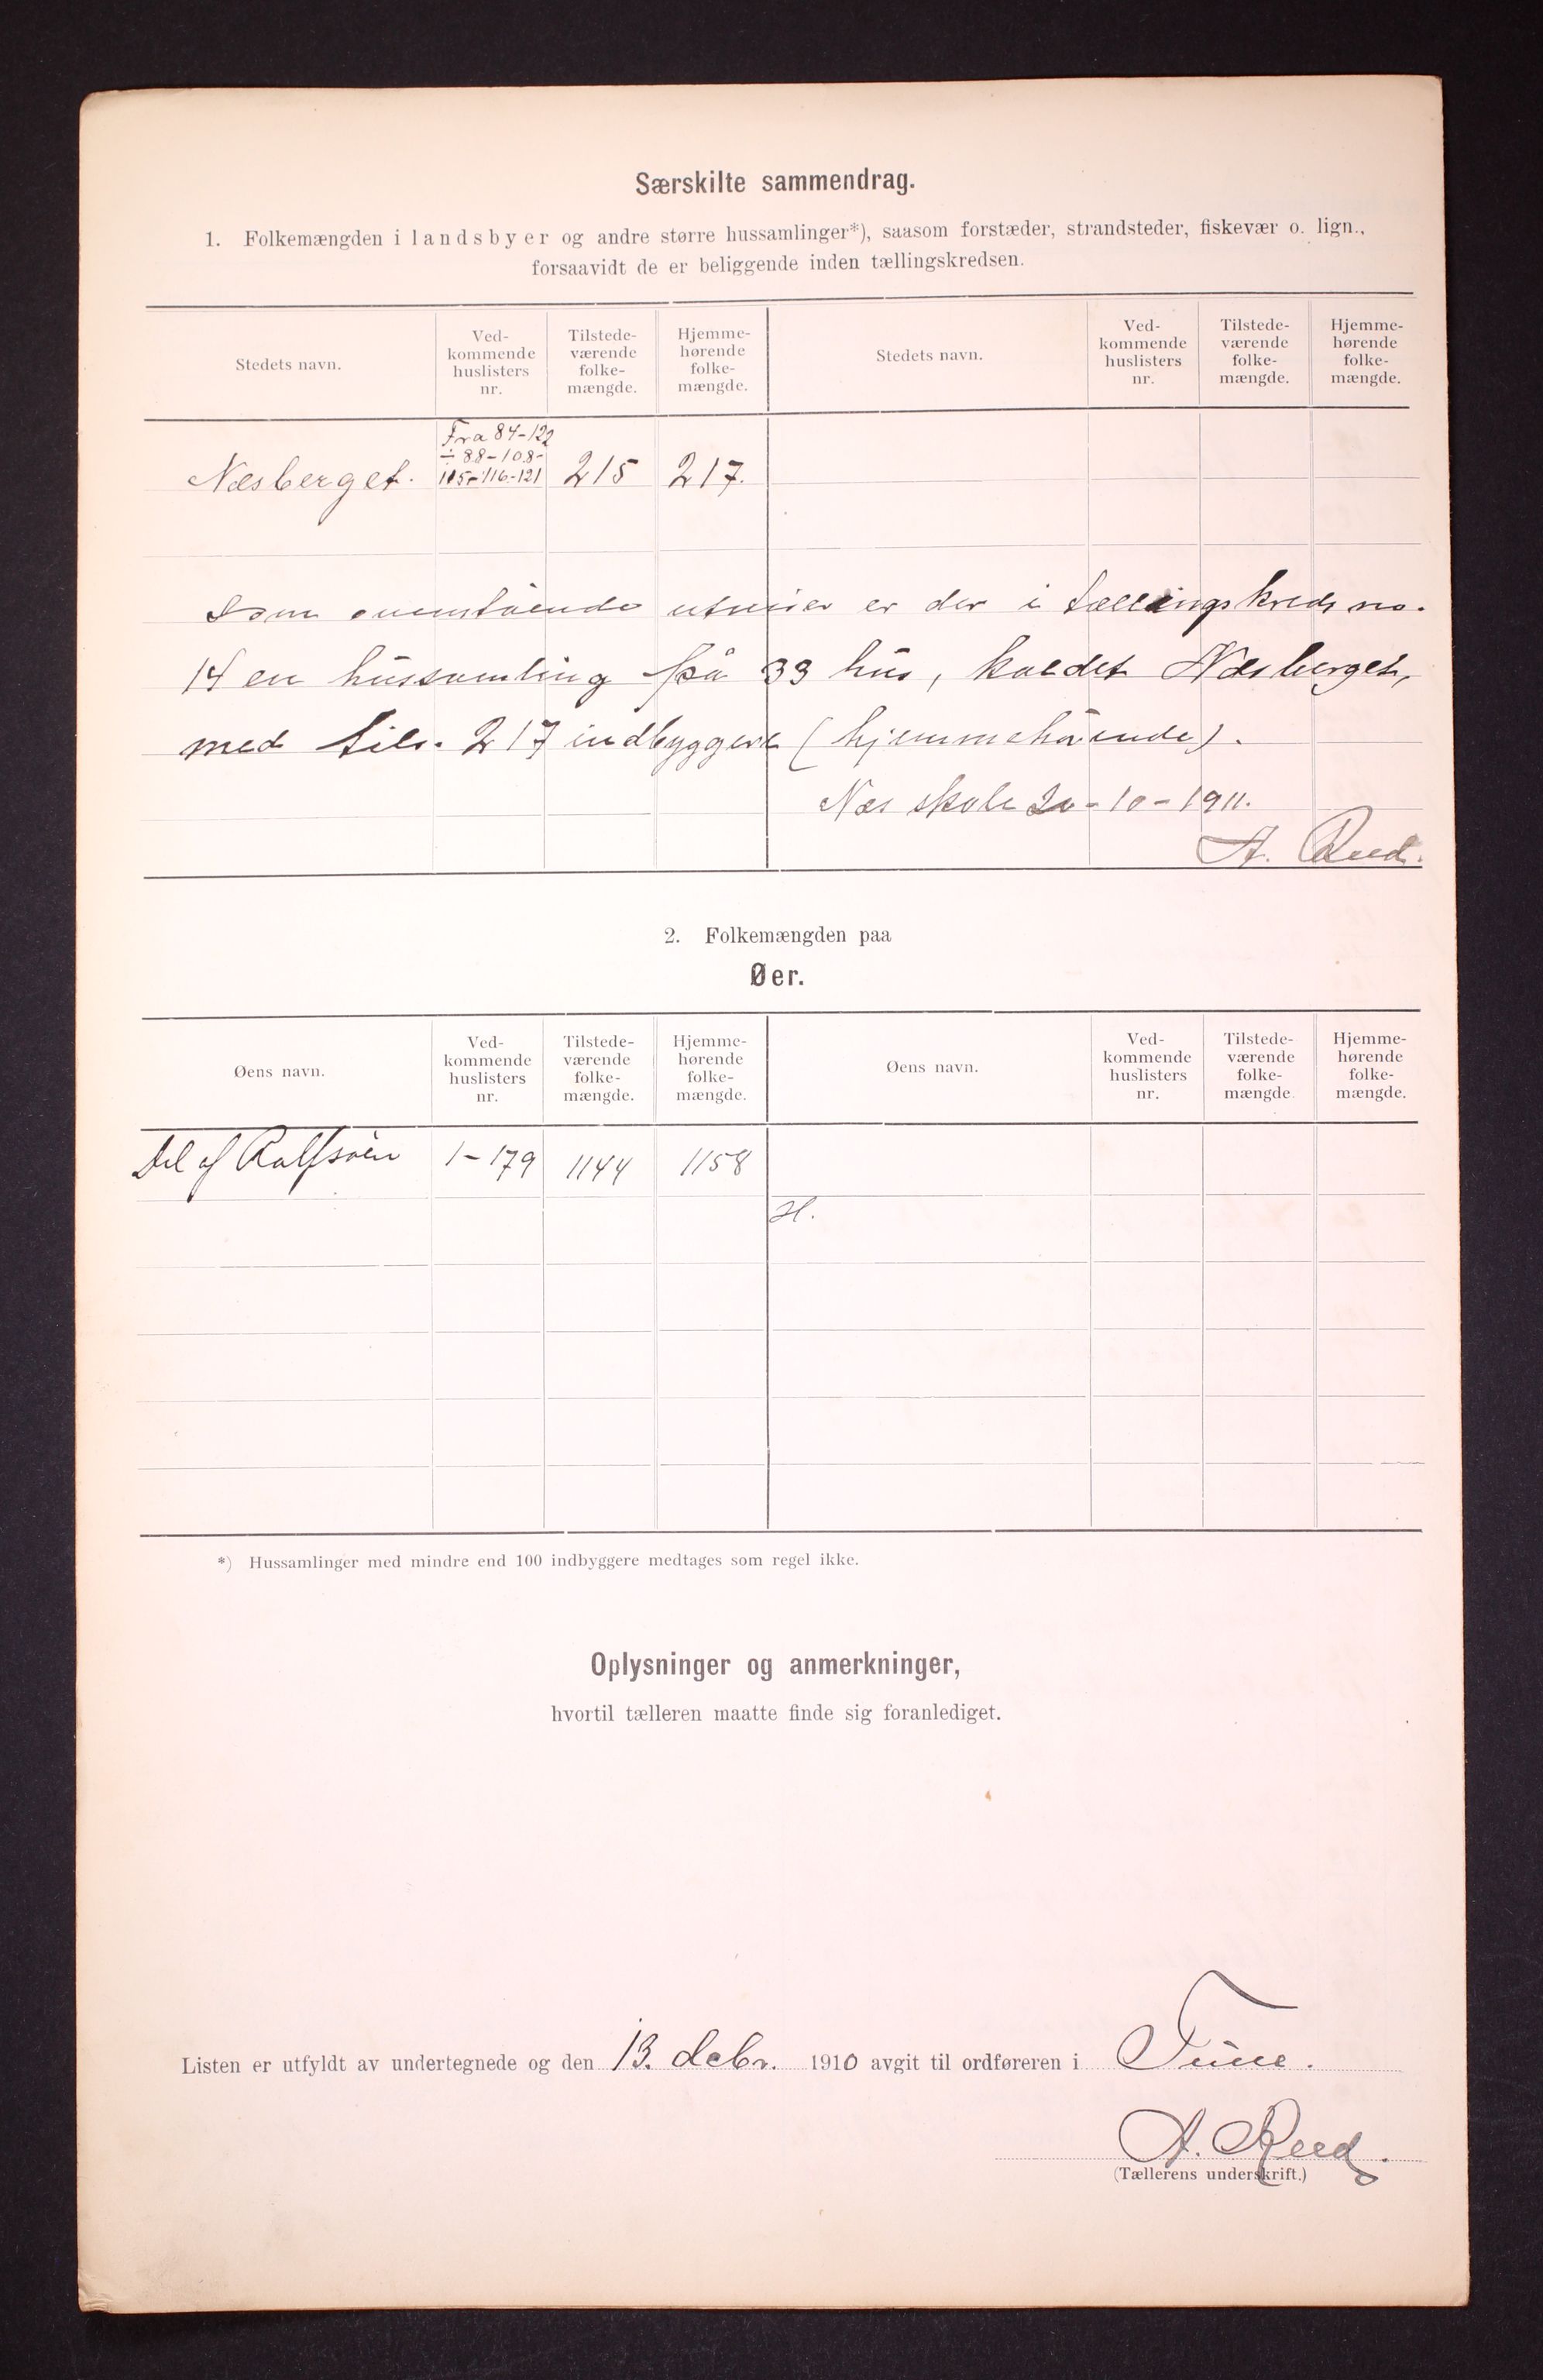 Særskilte sammendrag.
1. Folkemængden i landsbyer og andre større hussamlinger*), saasom forstæder, strandsteder, fiskevær o. lign.,
forsaavidt de er beliggende inden tællingskredsen.
Stedets navn.
Ved-
kommende
huslisters
nr.
Tilstede-
værende
folke-
mængde.
Hjemme-
hørende
folke-
mængde.
Stedets navn.
Ved-
kommende
huslisters
nr.
Tilstede-
værende
folke-
mængde.
Hjemme-
hørende
folke-
mængde.
Næsberget.
Fra 84-122
÷ 88-108-
115-116-121
215
217.
Som ovenstående utviser er der i tællingskreds no.
14 en hussamling på 33 hus, kaldet Næsberget,
med tils. 217 indbyggere (hjemmehörende).
Næs skole 20-10-1911.
A. Rud.
2. Folkemængden paa
Øer.
Øens navn.
Ved-
kommende
huslisters
nr.
Tilstede-
værende
folke-
mængde.
Hjemme-
hørende
folke-
mængde.
Øens navn.
Ved-
kommende
huslisters
nr.
Tilstede-
værende
folke-
mængde
Hjemme-
hørende
folke-
mængde.
Del af Rolfsöen
1-179
1144
1158
H.
*) Hussamlinger med mindre end 100 indbyggere medtages som regel ikke.
Oplysninger og anmerkninger,
hvortil tælleren maatte finde sig foranlediget.
Listen er utfyldt av undertegnede og den 13. debr. 1910 avgit til ordføreren i Tune.
A. Rud.
(Tællerens underskrift.)